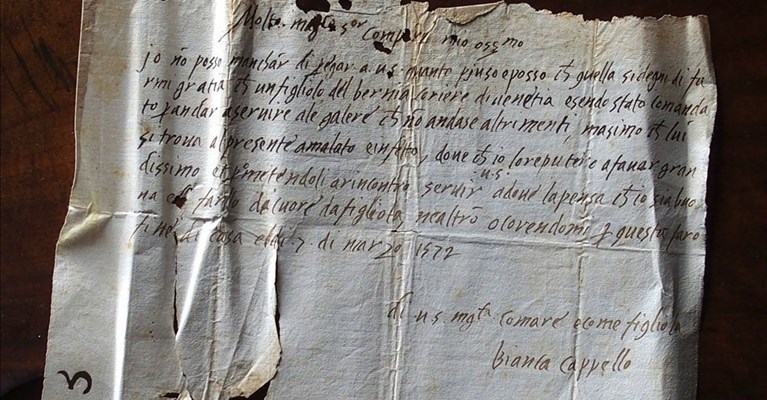 Molto magco sor compare mio ossmo
jo nō posso manchār di pregar a u.s. quanto piu so e posso ch quella si degni di fa
rmi gratia ch un figliolo del bernia coriere di venetia esendo stato comanda
to p andar a servire ale galere ch nō andase altrimenti, masimo ch lui
si trova al presente amalato e infetto, dove ch io lo reputere a favar gran
dissimo et pmetendoli a rincontro servir u.s. adove la pensa ch io sia buo
na et farlo di cuore da figliola, ne altrō ocorendomi p questa faro
fine di casa el di 7. di marzo 1572
di u s mgta comare e come figliola
Bianca Cappello
3